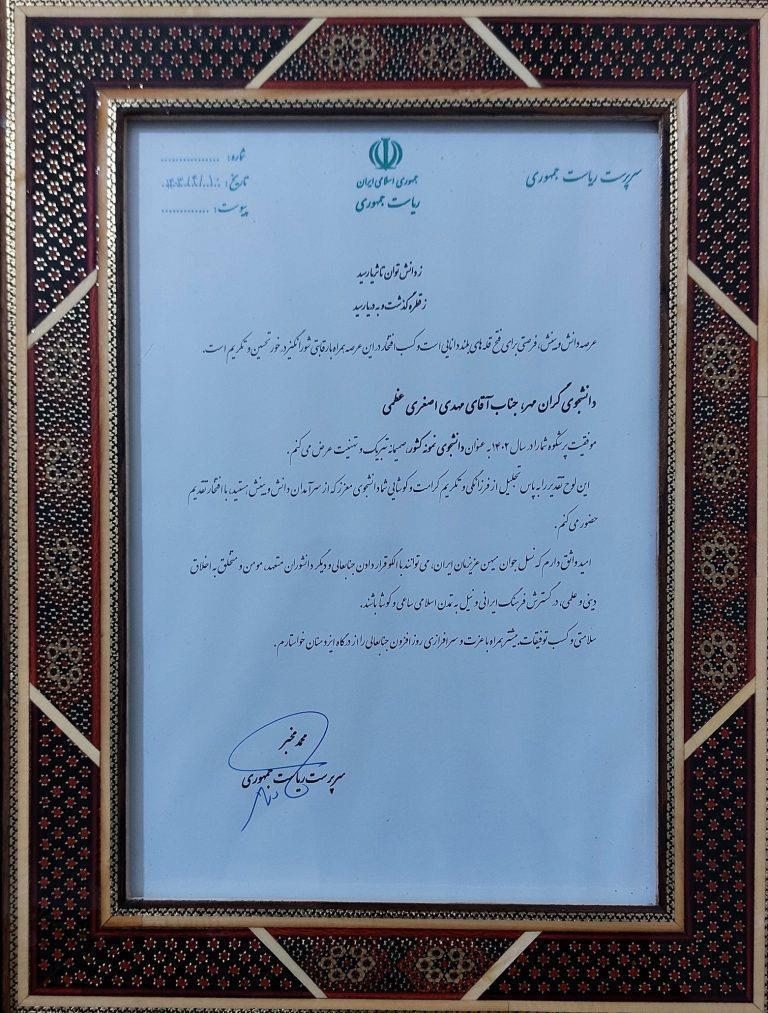 سرپرست ریاست جمهوری
جمهوری اسلامی ایران
ریاست جمهوری
شماره: ................
تاریخ: ۱۴۰۳/۴/۱۰
پیوست: .............
ز دانش توان تا ثریا رسید
ز قطره گذشت و به دریا رسید
عرصه دانش و بینش، فرصتی برای فتح قله های بلند دانایی است و کسب افتخار در این عرصه همراه با رقابتی شورانگیز در خور تحسین و تکریم است.
دانشجوی گران مهر، جناب آقای مهدی اصغری عظمی
موفقیت پرشکوه شما را در سال ۱۴۰۲ به عنوان دانشجوی نمونه کشور، صمیمانه تبریک و تهنیت عرض می کنم.
این لوح تقدیر را به پاس تجلیل از فرزانگی و تکریم کرامت و کوشایی شما دانشجوی معزز که از سرآمدان دانش و بینش هستید، با افتخار تقدیم
حضور می کنم.
امید واثق دارم که نسل جوان میهن عزیزمان ایران، می توانند با الگو قرار دادن جنابعالی و دیگر دانشوران متعهد، مومن و متخلق به اخلاق
دینی و علمی، در گسترش فرهنگ ایرانی و نیل به تمدن اسلامی ساعی و کوشا باشند.
سلامتی و کسب توفیقات بیشتر همراه با عزت و سرافرازی روز افزون جنابعالی را از درگاه ایزد منان خواستارم.
محمد مخبر
سرپرست ریاست جمهوری